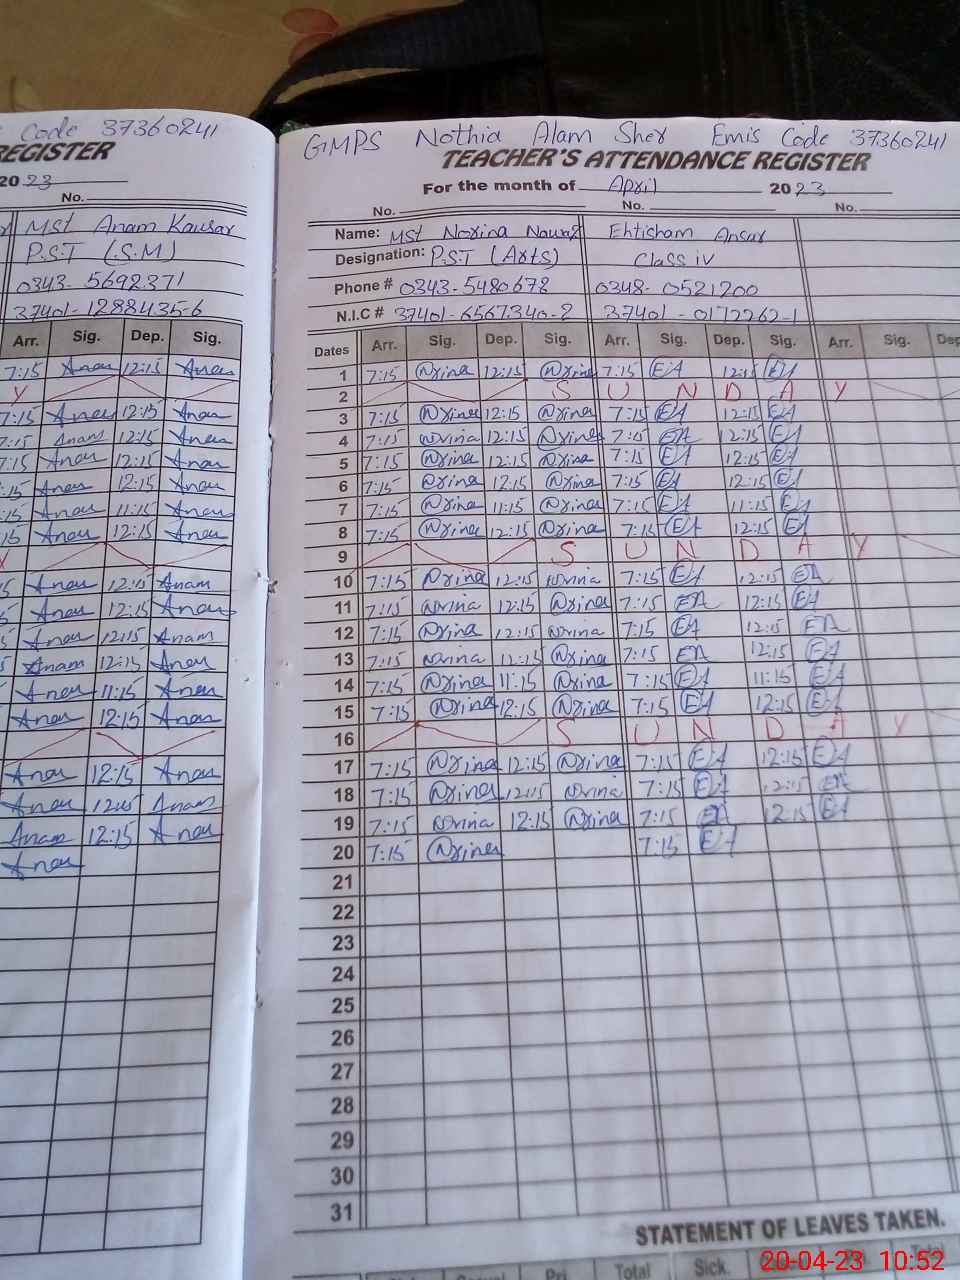 Code 37360241
REGISTER
2023
No.
Mst Anam Kausar
P.S.T (S.M)
0343-5692371
37401-1288435-6
Arr. Sig. Dep. Sig.
7:15 Anam 12:15 Anam
Y
7:15 Anam 12:15 Anam
7:15 Anam 12:15 Anam
7:15 Anam 12:15 Anam
:15 Anam 12:15 Anam
:15 Anam 11:15 Anam
15 Anam 12:15 Anam
Y
5 Anam 12:15 Anam
5 Anam 12:15 Anam
5 Anam 12:15 Anam
5 Anam 12:15 Anam
Anam 11:15 Anam
Anam 12:15 Anam
Anam 12:15 Anam
Anam 12:15 Anam
Anam 12:15 Anam
Anam
GMPS Nothia Alam Sher Emis Code 37360241
TEACHER'S ATTENDANCE REGISTER
For the month of April 2023
No. No. No.
Name: Mst Norina Nawaz Ehtisham Ansar
Designation: P.S.T (Arts) Class iv
Phone # 0343-5480678 0348-0521200
N.I.C # 37401-6567340-2 37401-0172262-1
Dates Arr. Sig. Dep. Sig. Arr. Sig. Dep. Sig. Arr. Sig. Dep
1 7:15 Norina 12:15 Norina 7:15 EA 12:15 EA
2 S U N D A Y
3 7:15 Norina 12:15 Norina 7:15 EA 12:15 EA
4 7:15 Norina 12:15 Norina 7:15 EA 12:15 EA
5 7:15 Norina 12:15 Norina 7:15 EA 12:15 EA
6 7:15 Norina 12:15 Norina 7:15 EA 12:15 EA
7 7:15 Norina 11:15 Norina 7:15 EA 11:15 EA
8 7:15 Norina 12:15 Norina 7:15 EA 12:15 EA
9 S U N D A Y
10 7:15 Norina 12:15 Norina 7:15 EA 12:15 EA
11 7:15 Norina 12:15 Norina 7:15 EA 12:15 EA
12 7:15 Norina 12:15 Norina 7:15 EA 12:15 EA
13 7:15 Norina 12:15 Norina 7:15 EA 12:15 EA
14 7:15 Norina 11:15 Norina 7:15 EA 11:15 EA
15 7:15 Norina 12:15 Norina 7:15 EA 12:15 EA
16 S U N D A Y
17 7:15 Norina 12:15 Norina 7:15 EA 12:15 EA
18 7:15 Norina 12:15 Norina 7:15 EA 12:15 EA
19 7:15 Norina 12:15 Norina 7:15 EA 12:15 EA
20 7:15 Norina 7:15 EA
21
22
23
24
25
26
27
28
29
30
31
STATEMENT OF LEAVES TAKEN.
Total Sick. Total
20-04-23 10:52